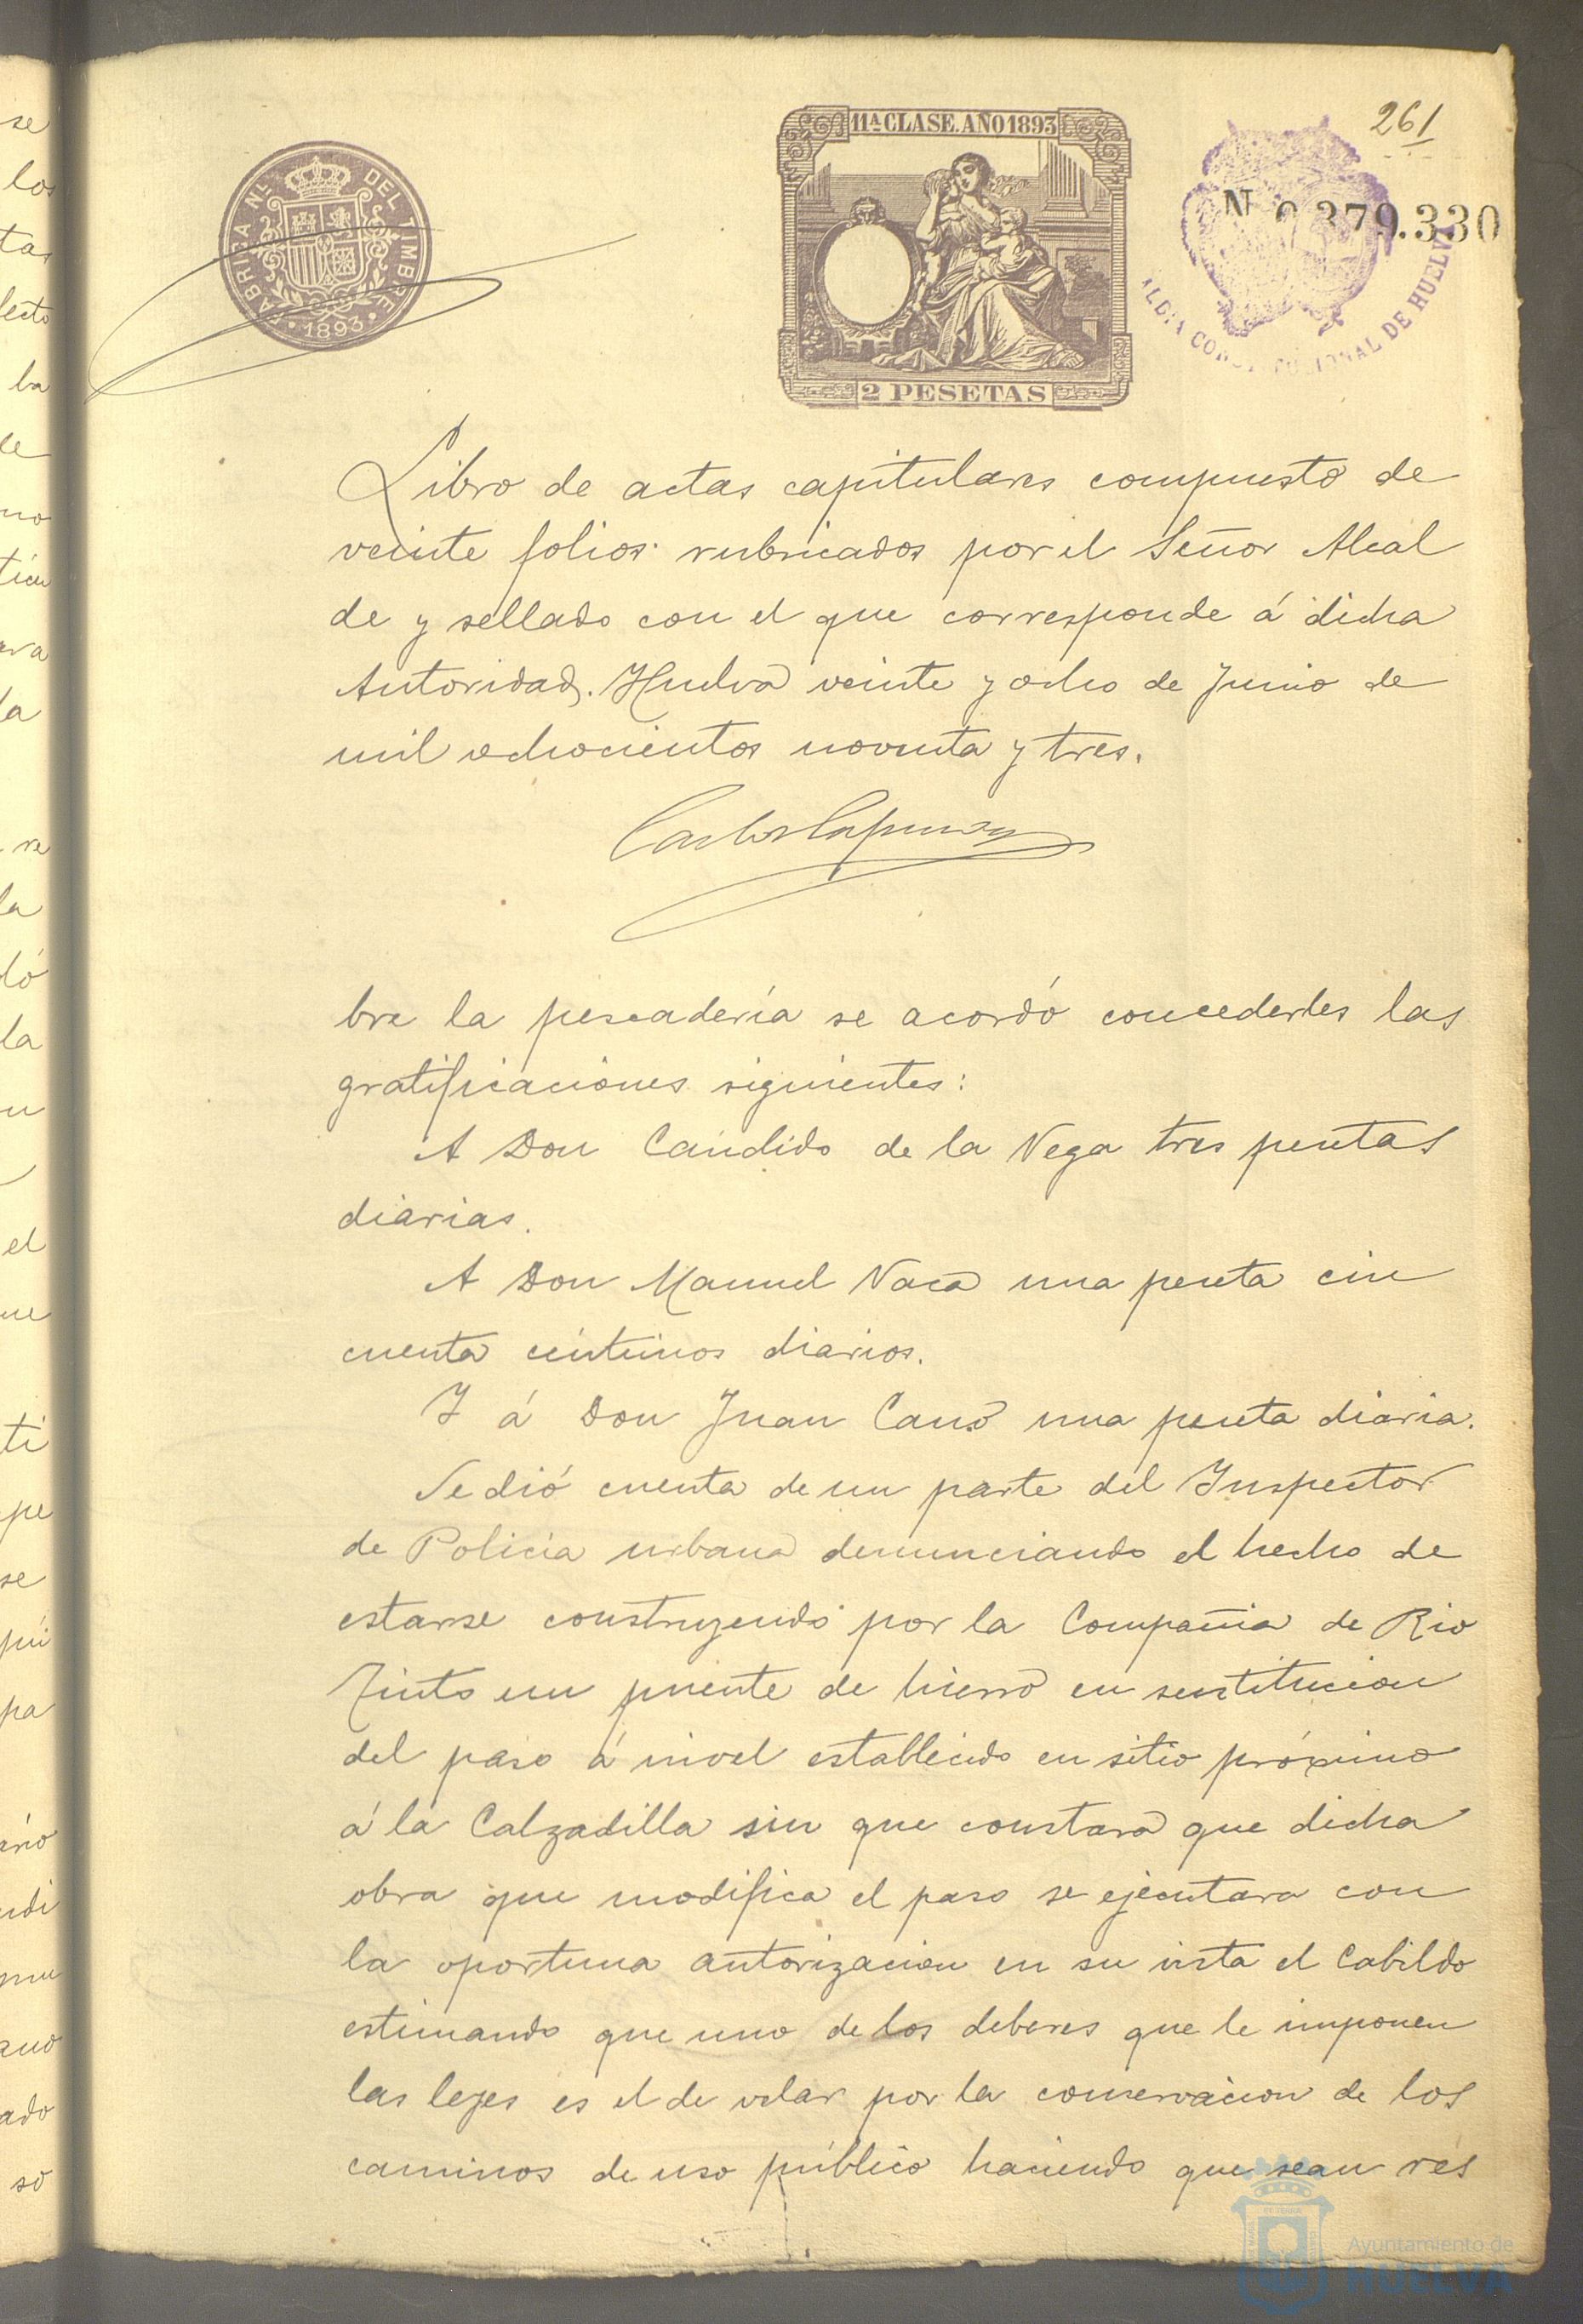 261
11ª CLASE. AÑO 1893
FABRICA NL. DEL TIMBRE
1893
379.330
CONS TUCIONAL DE HUELVA
2 PESETAS
Libro de actas capitulares compuesto de
veinte folios rubricados por el Señor Alcal
de y sellado con el que corresponde á dicha
Autoridad. Huelva veinte y ocho de Junio de
mil ochocientos noventa y tres.
bre la pescadería se acordó concederles las
gratificaciones siguientes:
A Don Cándido de la Vega tres pesetas
diarias.
A Don Manuel Vaca una peseta cin
cuenta céntimos diarios.
Y á Don Juan Cano una peseta diaria.
Se dió cuenta de un parte del Inspector
de Policia urbana denunciando el hecho de
estarse construyendo por la Compañia de Rio
Tinto un puente de hierro en sustitucion
del paso á nivel establecido en sitio próximo
á la Calzadilla sin que constara que dicha
obra que modifica el paso se ejecutara con
la oportuna autorizacion en su vista el Cabildo
estimando que uno de los deberes que le imponen
las leyes es el de velar por la conservacion de los
caminos de uso público haciendo que sean res
Ayuntamiento de
HUELVA